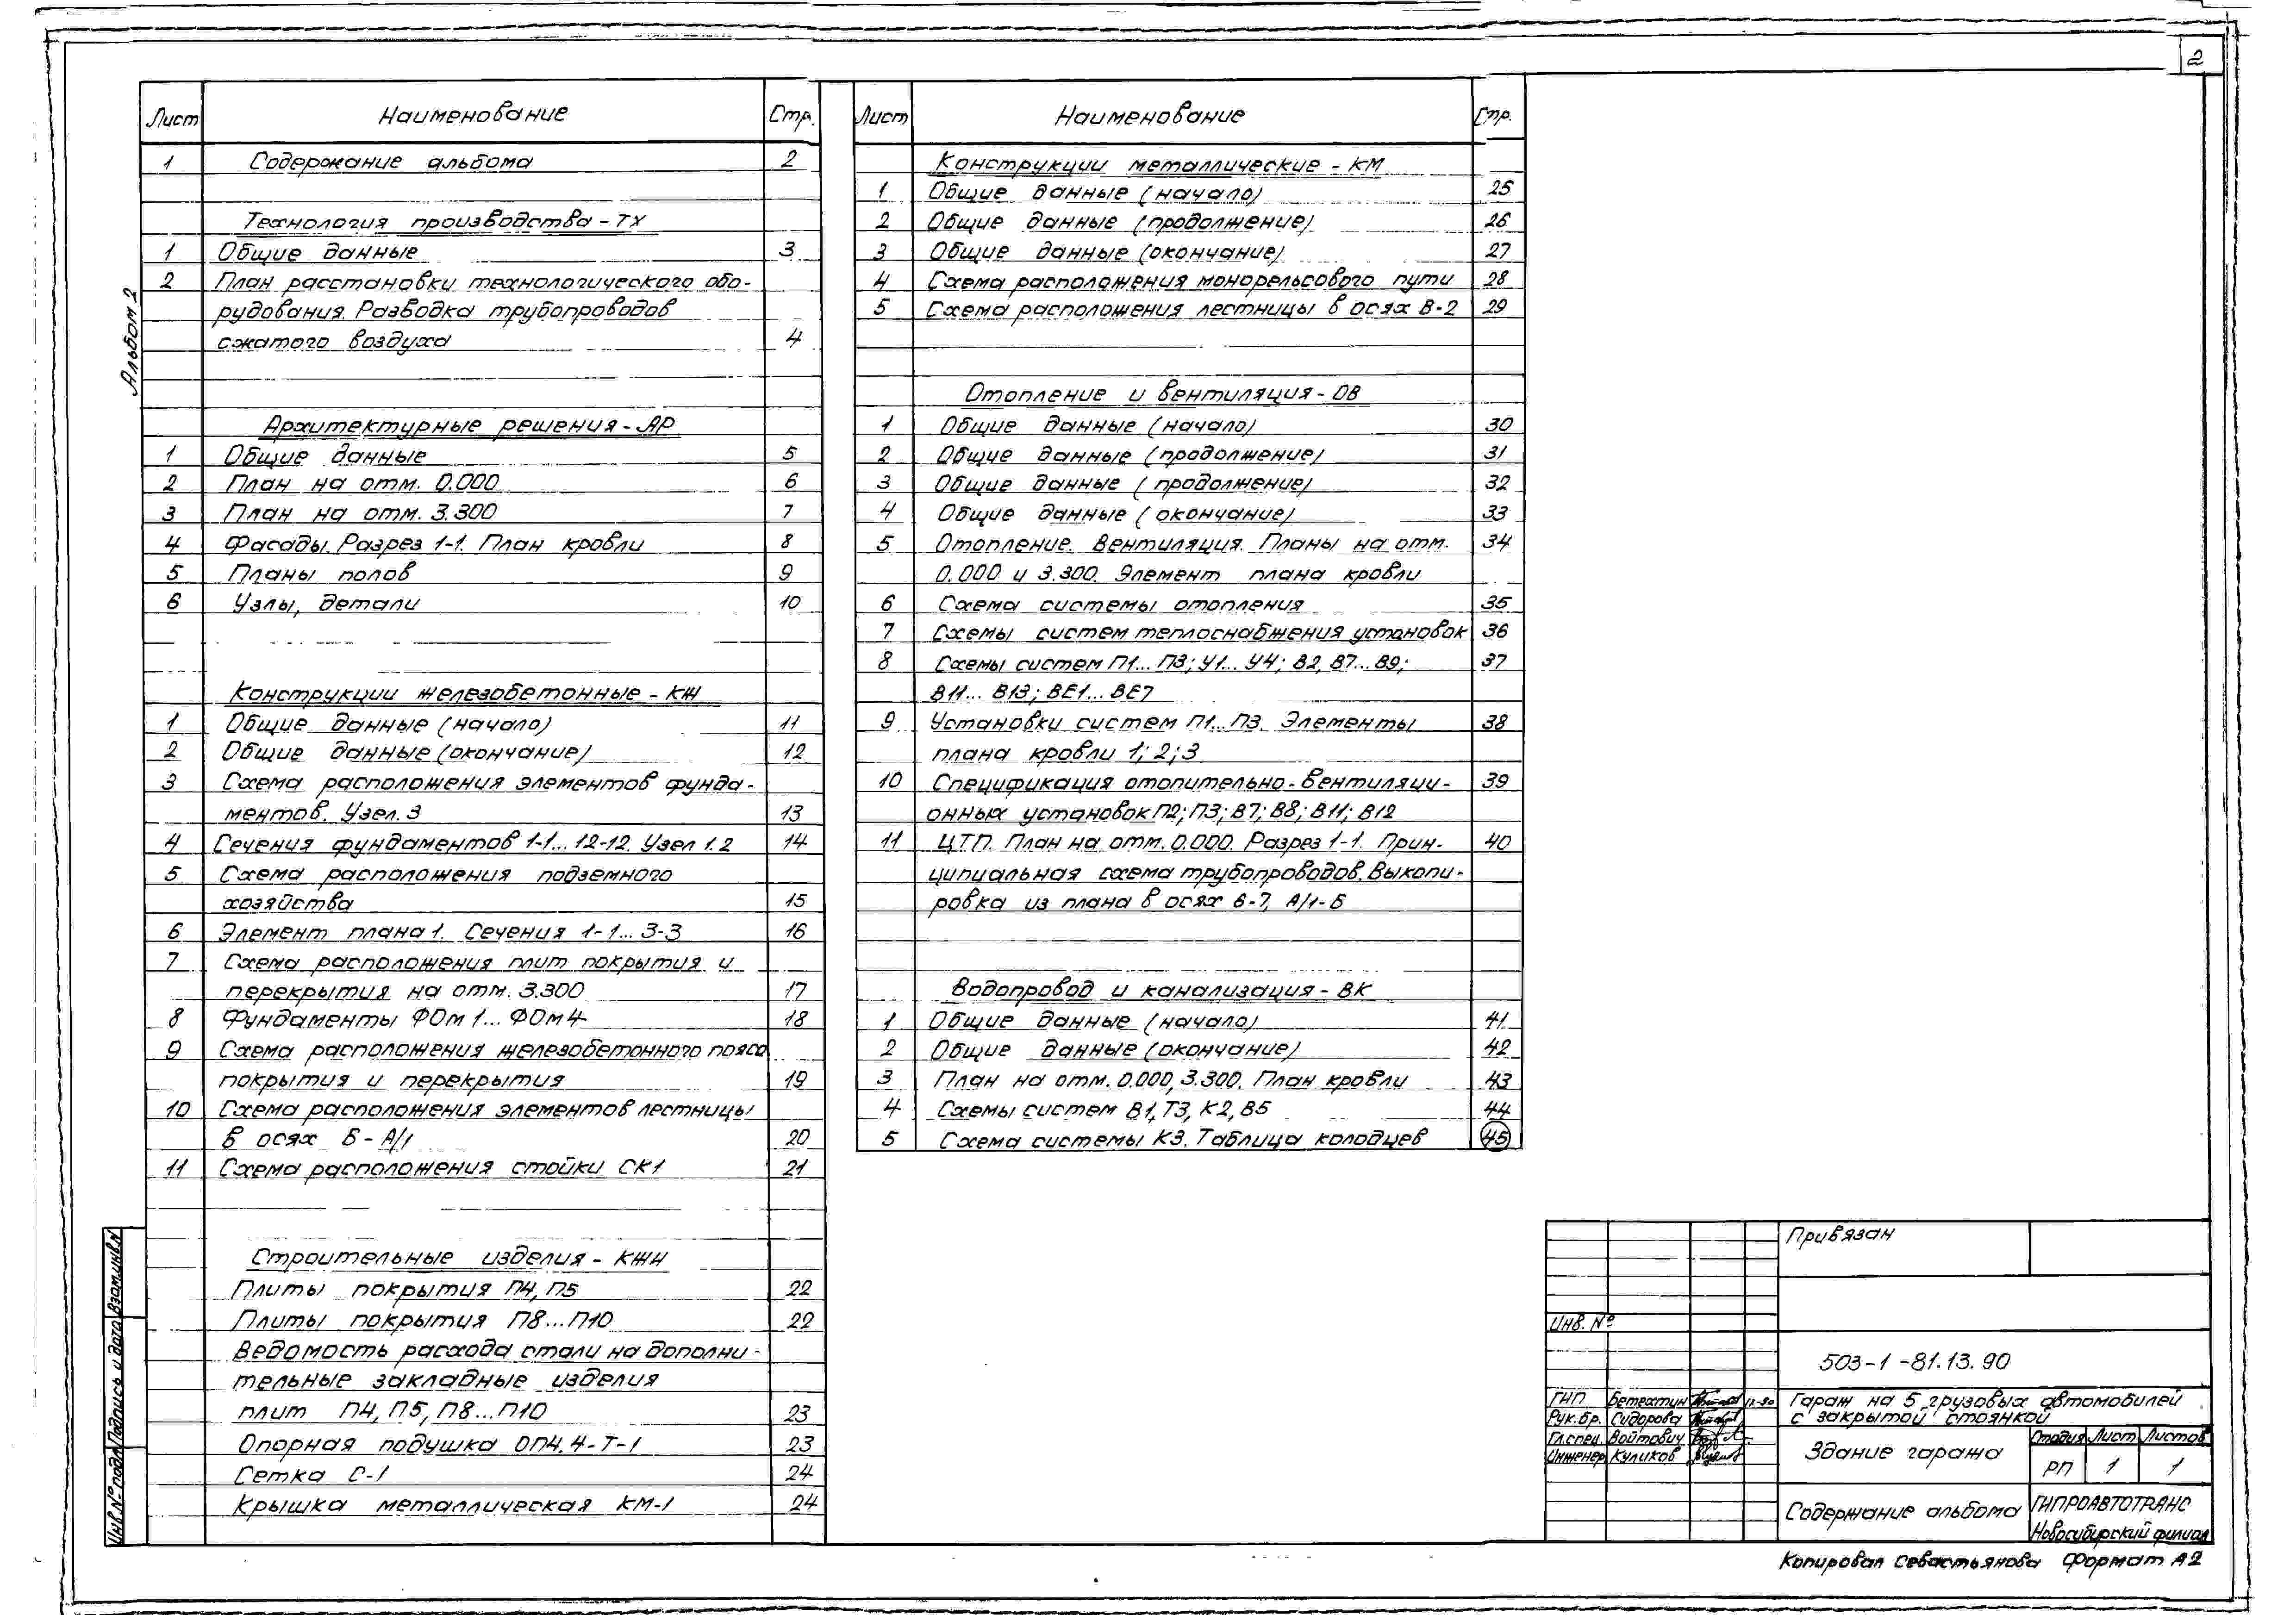 2
Альбом 2
Лист Наименование Стр.
1 Содержание альбома 2
Технология производства - ТХ
1 Общие данные 3
2 План расстановки технологического обо-
рудования. Разводка трубопроводов
сжатого воздуха 4
Архитектурные решения - АР
1 Общие данные 5
2 План на отм. 0.000 6
3 План на отм. 3.300 7
4 Фасады. Разрез 1-1. План кровли 8
5 Планы полов 9
6 Узлы, детали 10
Конструкции железобетонные - КЖ
1 Общие данные (начало) 11
2 Общие данные (окончание) 12
3 Схема расположения элементов фунда-
ментов. Узел. 3 13
4 Сечения фундаментов 1-1... 12-12. Узел 1.2 14
5 Схема расположения подземного
хозяйства 15
6 Элемент плана 1. Сечения 1-1... 3-3 16
7 Схема расположения плит покрытия и
перекрытия на отм. 3.300 17
8 Фундаменты ФОм 1... ФОм 4 18
9 Схема расположения железобетонного пояса
покрытия и перекрытия 19
10 Схема расположения элементов лестницы
в осях Б - А/1 20
11 Схема расположения стойки СК1 21
Строительные изделия - КЖИ
Плиты покрытия П4, П5 22
Плиты покрытия П8...П10 22
Ведомость расхода стали на дополни-
тельные закладные изделия
плит П4, П5, П8...П10 23
Опорная подушка ОП4.4-Т-1 23
Сетка С-1 24
Крышка металлическая КМ-1 24
Лист Наименование Стр.
Конструкции металлические - КМ
1 Общие данные (начало) 25
2 Общие данные (продолжение) 26
3 Общие данные (окончание) 27
4 Схема расположения монорельсового пути 28
5 Схема расположения лестницы в осях В-2 29
Отопление и вентиляция - ОВ
1 Общие данные (начало) 30
2 Общие данные (продолжение) 31
3 Общие данные (продолжение) 32
4 Общие данные (окончание) 33
5 Отопление. Вентиляция. Планы на отм. 34
0.000 и 3.300. Элемент плана кровли
6 Схема системы отопления 35
7 Схемы систем теплоснабжения установок 36
8 Схемы систем П1... П3; У1... У4; В2, В7... В9; 37
В11... В13; ВЕ1... ВЕ7
9 Установки систем П1...П3. Элементы 38
плана кровли 1; 2; 3
10 Спецификация отопительно-вентиляци- 39
онных установок П2; П3; В7; В8; В11; В12
11 ЦТП. План на отм. 0.000. Разрез 1-1. Прин- 40
ципиальная схема трубопроводов. Выкопи-
ровка из плана в осях 6-7, А/1-Б
Водопровод и канализация - ВК
1 Общие данные (начало) 41
2 Общие данные (окончание) 42
3 План на отм. 0.000, 3.300. План кровли 43
4 Схемы систем В1, Т3, К2, В5 44
5 Схема системы К3. Таблица колодцев 45
Привязан
Инв. №
503-1-81.13.90
ГИП Бетехтин 12-90
Рук.бр. Сидорова
Гл.спец. Войтович
Инженер Куликов
Гараж на 5 грузовых автомобилей
с закрытой стоянкой
Здание гаража
Стадия Лист Листов
РП 1 1
Содержание альбома
ГИПРОАВТОТРАНС
Новосибирский филиал
Копировал Севастьянова Формат А2
Инв.№ подл. Подпись и дата Взам.инв.N